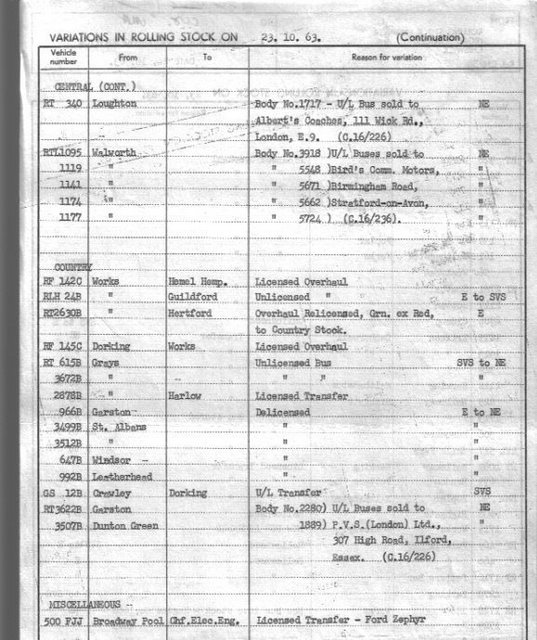 VARIATIONS IN ROLLING STOCK ON 23. 10. 63. (Continuation)
Vehicle number From To Reason for variation
CENTRAL (CONT.)
RT 340 Loughton Body No.1717 - U/L Bus sold to NE
Albert's Coaches, 111 Wick Rd.,
London, E.9. (C.16/226)
RTL1095 Walworth Body No.3918 )U/L Buses sold to NE
1119 " " 5548 )Bird's Comm. Motors, "
1141 " " 5671 )Birmingham Road, "
1174 " " 5662 )Stratford-on-Avon, "
1177 " " 5724 ) (C.16/236). "
COUNTRY
RF 142C Works Hemel Hemp. Licensed Overhaul
RLH 24B " Guildford Unlicensed " E to SVS
RT2630B " Hertford Overhaul Relicensed, Grn. ex Red, E
to Country Stock.
RF 145C Dorking Works Licensed Overhaul
RT 615B Grays Unlicensed Bus SVS to NE
3672B " " " "
2878B " Harlow Licensed Transfer
966B Garston Delicensed E to NE
3499B St. Albans " "
3512B " " "
647B Windsor " "
992B Leatherhead " "
GS 12B Crawley Dorking U/L Transfer SVS
RT3622B Garston Body No.2280) U/L Buses sold to NE
3507B Dunton Green 1889) P.V.S.(London) Ltd., "
307 High Road, Ilford,
Essex. (C.16/226)
MISCELLANEOUS
500 FJJ Broadway Pool Chf.Elec.Eng. Licensed Transfer - Ford Zephyr